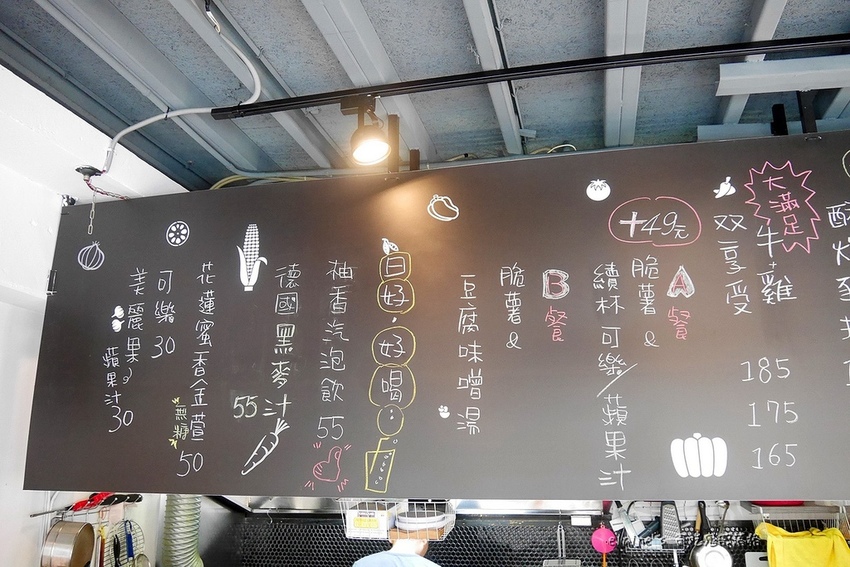 大滿足
牛+雞
雙享受
185
175
165
+49元
A餐
脆薯&
續杯可樂/蘋果汁
B餐
脆薯&
豆腐味噌湯
日好.好喝:
柚香汽泡飲 55
德國黑麥汁
55
花蓮蜜香金萱
無糖
50
可樂 30
美麗果
蘋果汁
30